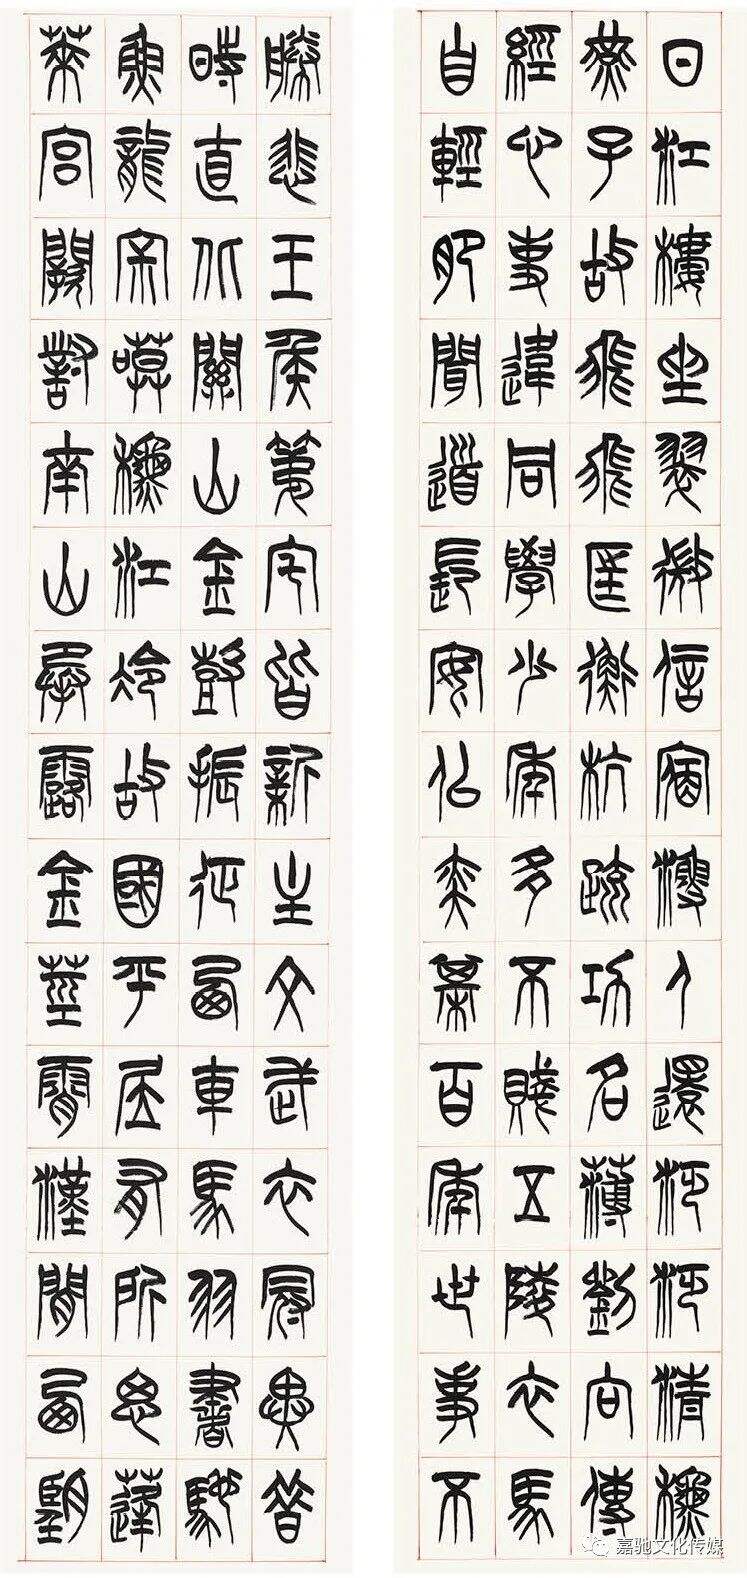 日江樓坐翠微信宿漁人還泛泛清秋
燕子故飛飛匡衡抗疏功名薄劉向傳
經心事違同學少年多不賤五陵衣馬
自輕肥聞道長安似奕棋百年世事不
勝悲王侯第宅皆新主文武衣冠異昔
時直北關山金鼓振征西車馬羽書馳
魚龍寂寞秋江冷故國平居有所思蓬
萊宮闕對南山承露金莖霄漢間西望
嘉驰文化传媒